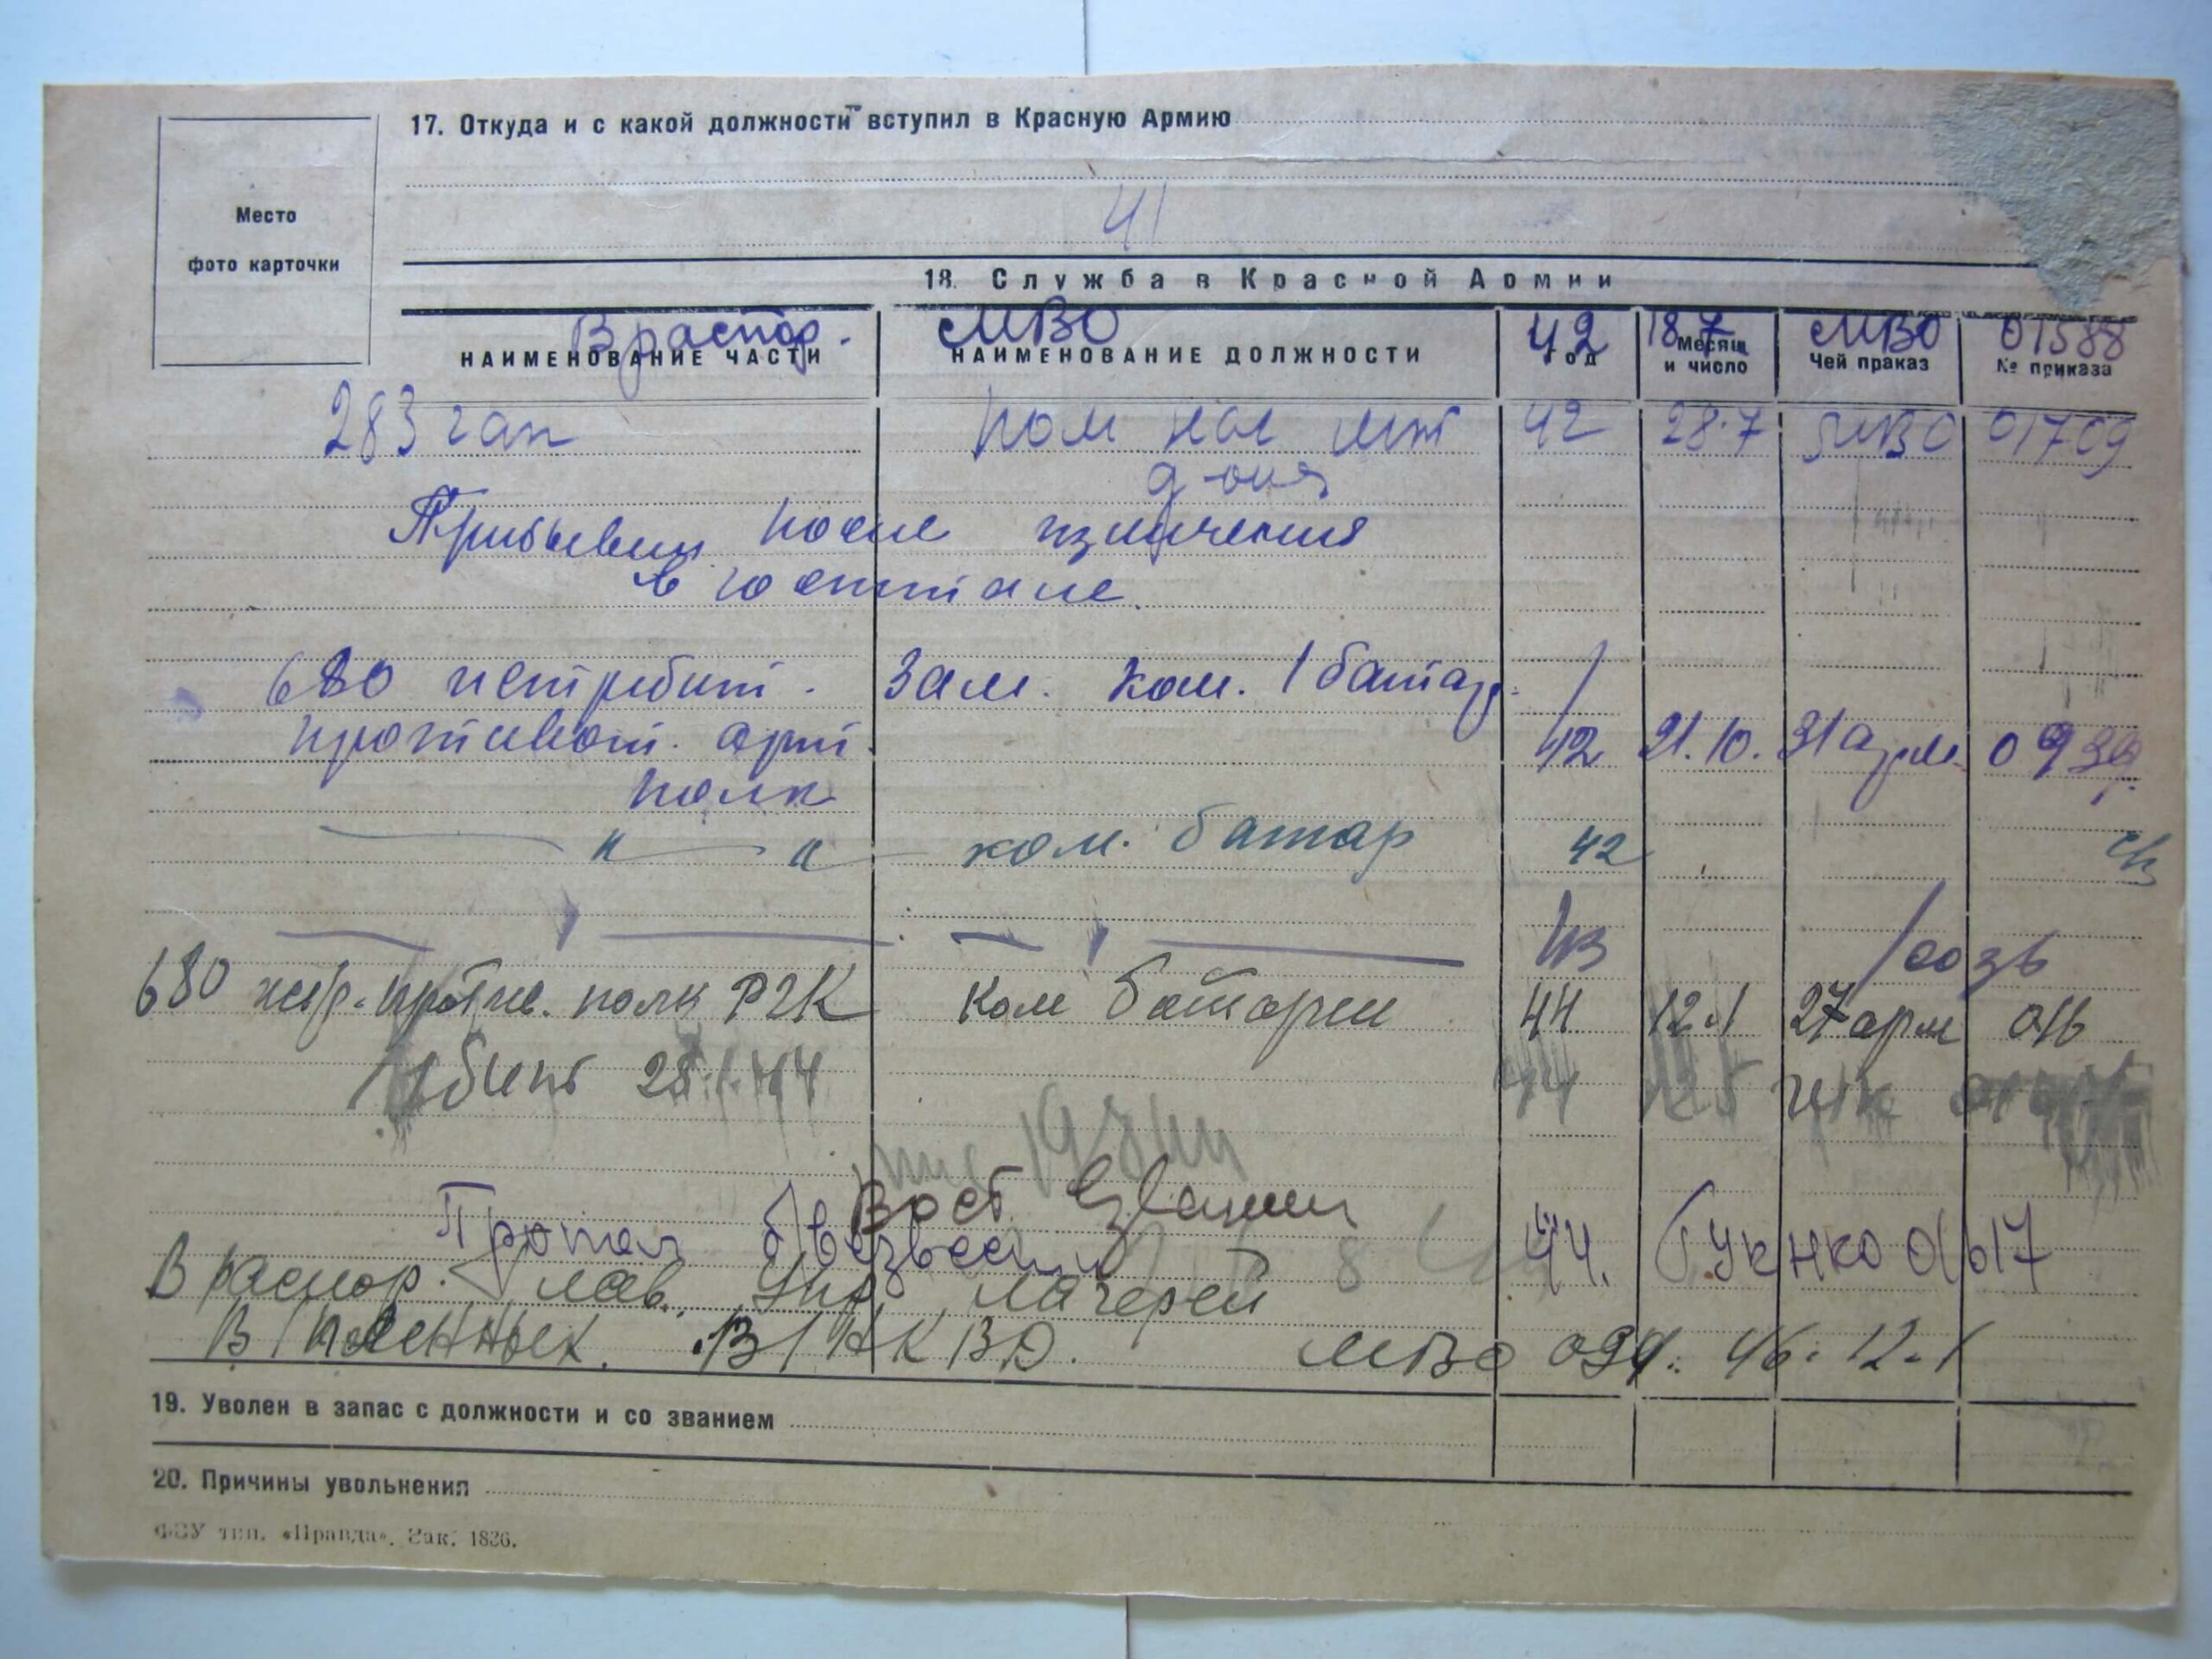 17. Откуда и с какой должности вступил в Красную Армию
Место
фото карточки
41
18. Служба в Красной Армии
В распор. МВО 42 18.7 МВО 01588
НАИМЕНОВАНИЕ ЧАСТИ НАИМЕНОВАНИЕ ДОЛЖНОСТИ Год Месяц и число Чей праказ № приказа
283 гап Пом нач шт 42 28.7 МВО 01709
д-она
Прибывш после излечения
в госпитале.
680 истребит. Зам. Ком. 1 батар.
противот. арт. 42 21.10. 31 арм 0939
полк
— " — " — ком. батар 42
43
680 истр. против. полк РГК Ком батареи 44 12.1 27 арм 016
Убит 28.1.44 44
Вост. в звании
Пропал без вести 44. ГУК НКО 01617
В распор. Глав. Упр. лагерей
В/пленных. В/НКВД. МВО 094. 46. 12.1
19. Уволен в запас с должности и со званием
20. Причины увольнения
ФЗУ тип. «Правда». Зак. 1836.